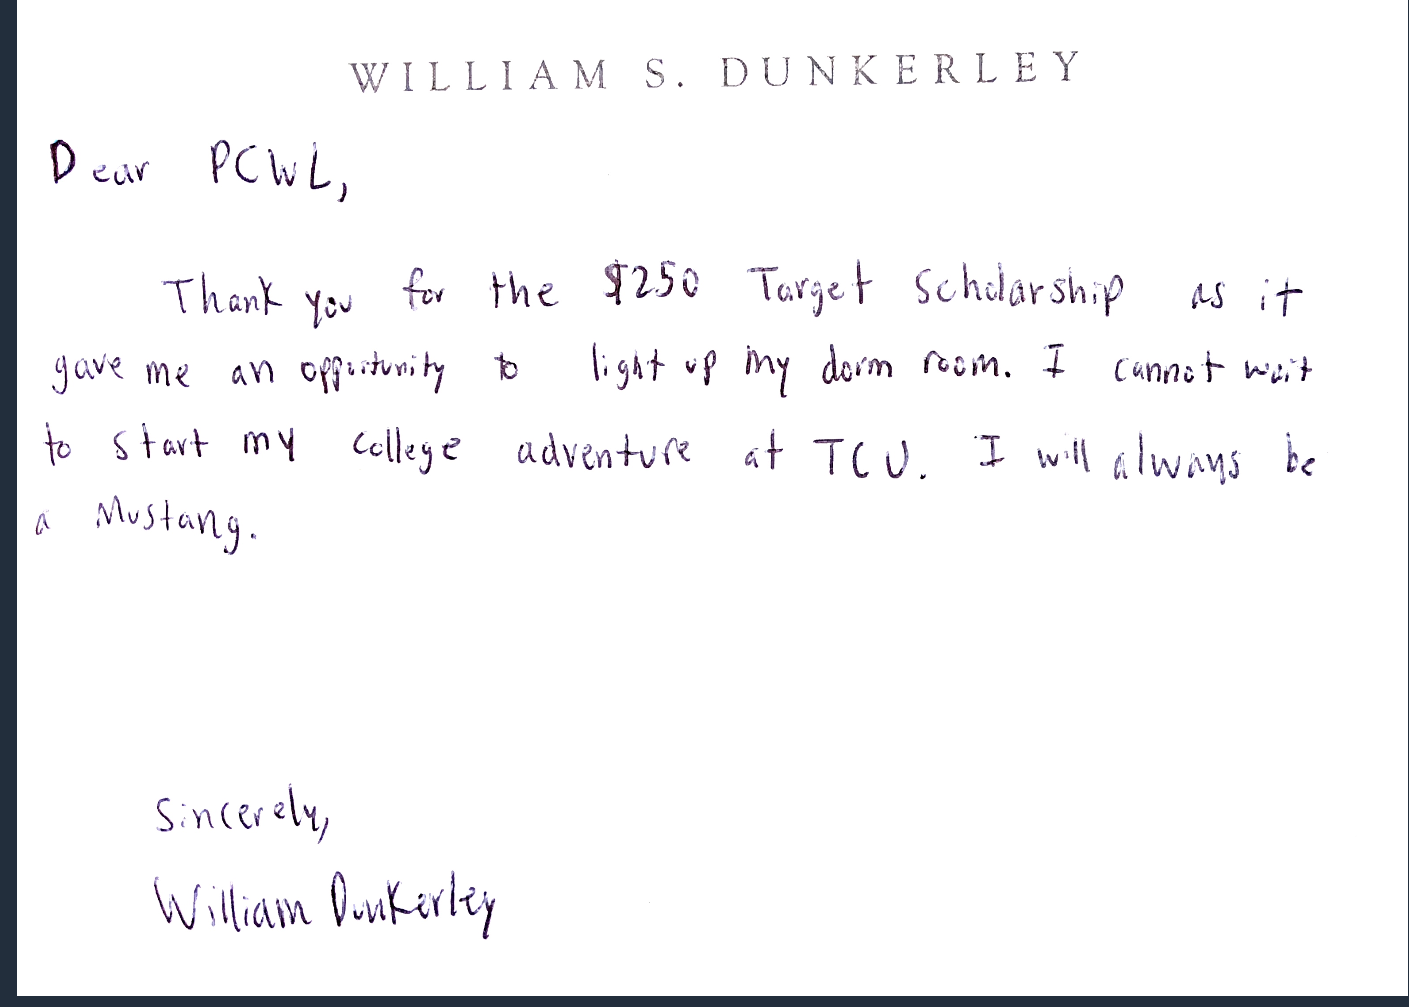 WILLIAM S. DUNKERLEY
Dear PCWL,
Thank you for the $250 Target Scholarship as it
gave me an opportunity to light up my dorm room. I cannot wait
to start my college adventure at TCU. I will always be
a Mustang.
Sincerely,
William Dunkerley